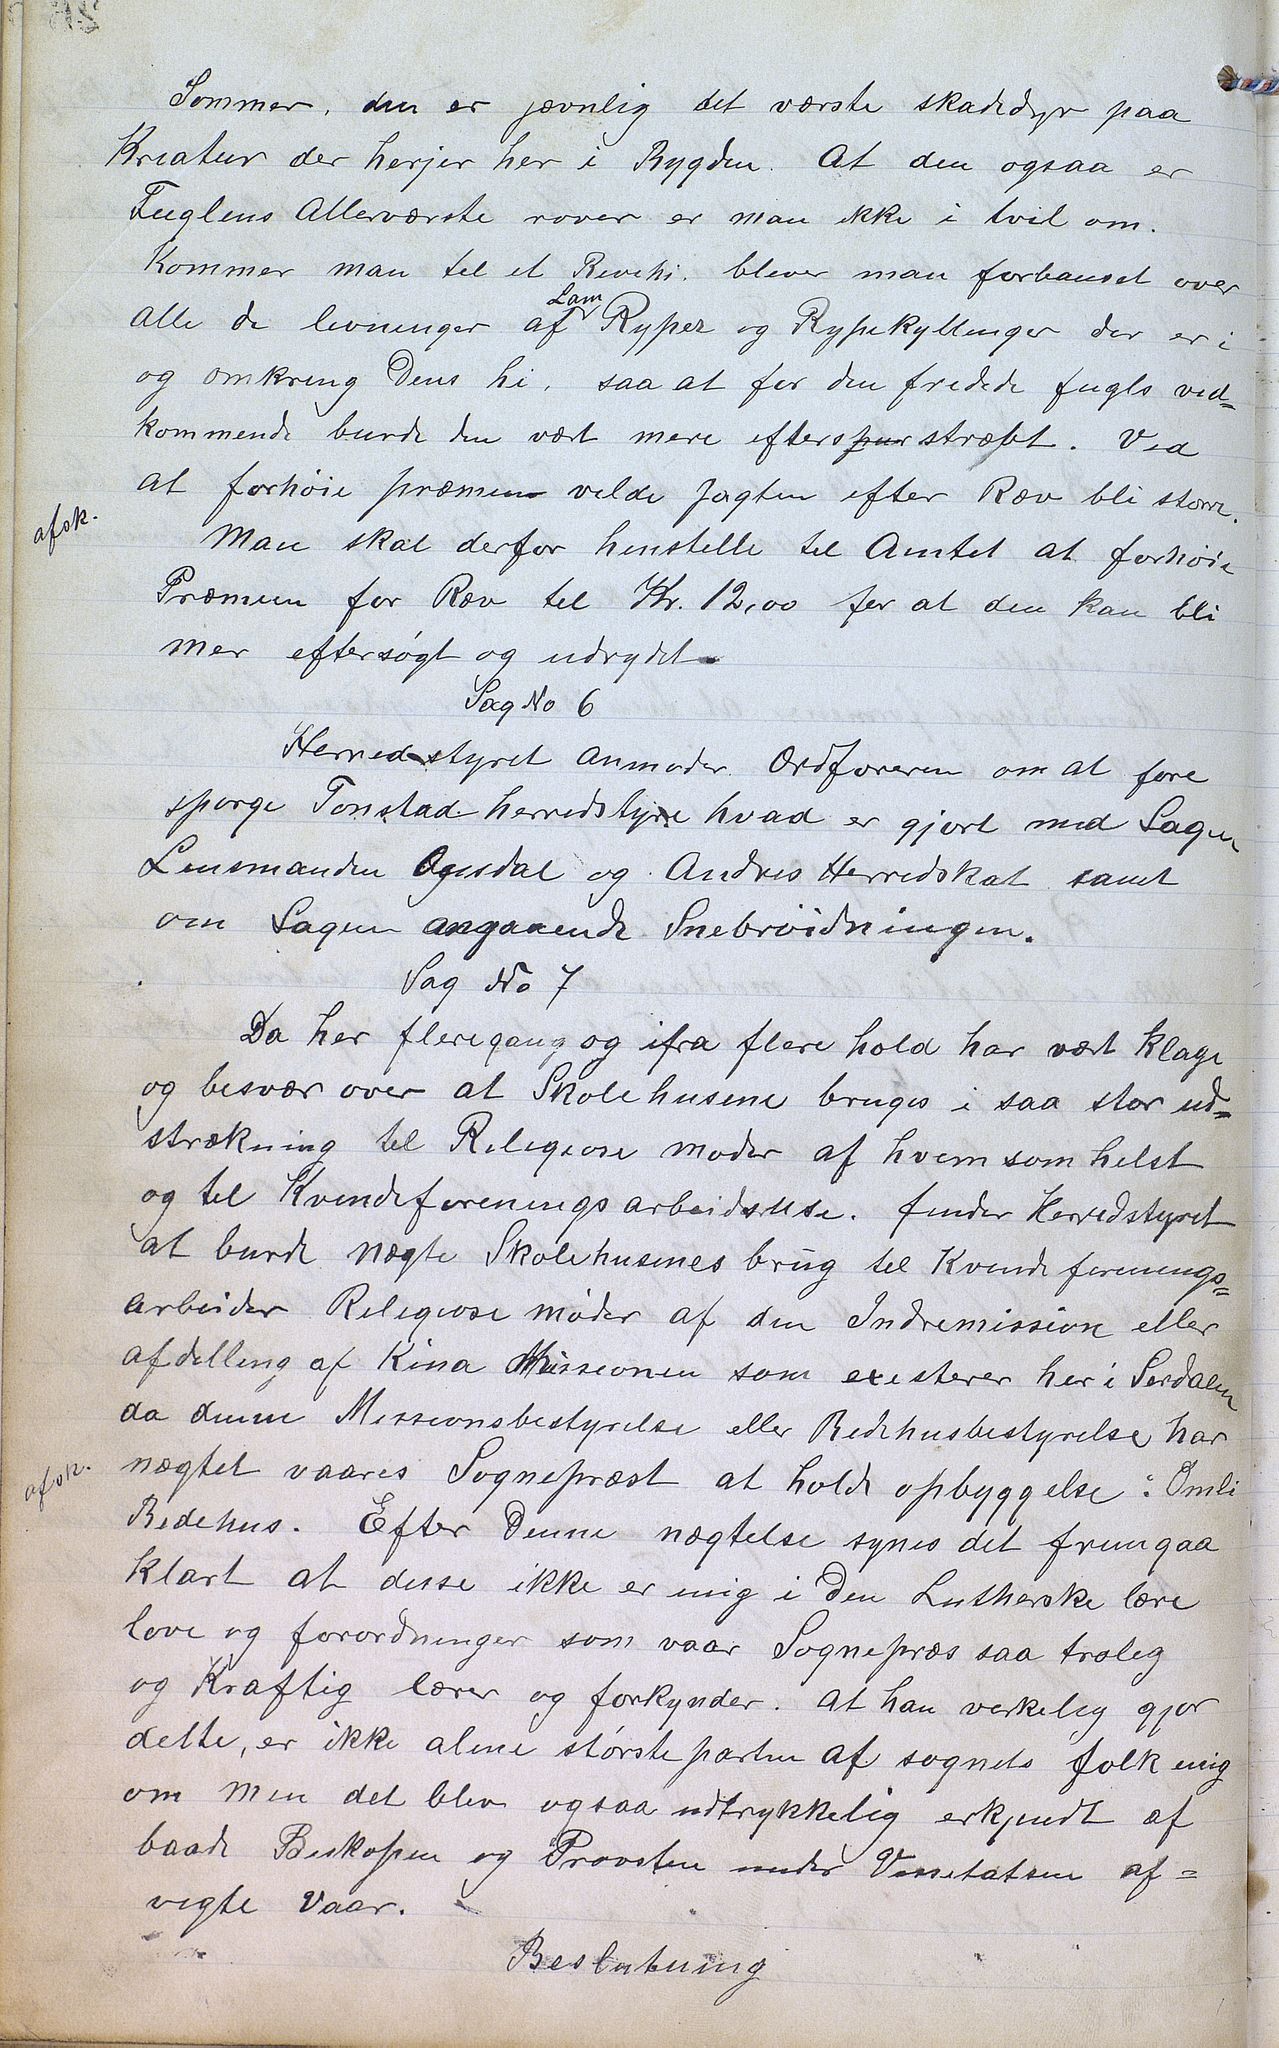 Sommer, den er jævnlig det værste skadedyr paa
Kreatur der herjer her i Bygden. At den ogsaa er
Fuglens Alleværste røver er man ikke i tvil om.
Kommer man til et Revehi, blever man forbauset over
alle de levninger af Lam Ryper og Rypekyllinger der er i
og omkring Dens hi, saa at for den fredede fugls ved=
kommende burde den vært mere efterspur stræbt. Ved
at forhøie præmien vilde Jagten efter Ræv bli større.
afsk.
Man skal derfor henstelle til Amtet at forhøie
Præmien for Ræv til Kr. 12,00 for at den kan bli
mer eftersøgt og udrydet.
Sag No 6
Herredsstyret anmoder Ordføreren om at fore
spørge Tonstad herredstyre hvad er gjort med Sagen
Lensmanden Ousdal og Andres Herredskat samt
om Sagen angaaende Snebrøidningen.
Sag No 7
Da her fleregang og ifra flere hold har vært klage
og besvær over at Skolehusene bruges i saa stor ud=
strækning til Religiøse møder af hvem som helst
og til Kvindeforenings arbeidsuse. finder Herredstyret
at burde nægte Skolehusenes brug til Kvinde forenings=
arbeider Religiøse møder af den Indremission eller
afdelling af Kina Missionen som existerer her i Serdalen
da denne Missionsbestyrelse eller Bedehusbestyrelse har
afsk.
nægtet vaares Sognepræst at holde opbyggelse i Omli
Bedehus. Efter Denne nægtelse synes det fremgaa
klart at desse ikke er enig i Den Lutherske lære
love og forordninger som vaar Sognepræs saa trolig
og Kraftig lærer og forkynder. At han verkelig gjør
dette, er ikke alene størsteparten af sognets folk enig
om men det blev ogsaa udtrykkelig erkjendt af
baade Biskopen og Provsten under Vissetatsen af=
vigte Vaar.
Beslutning